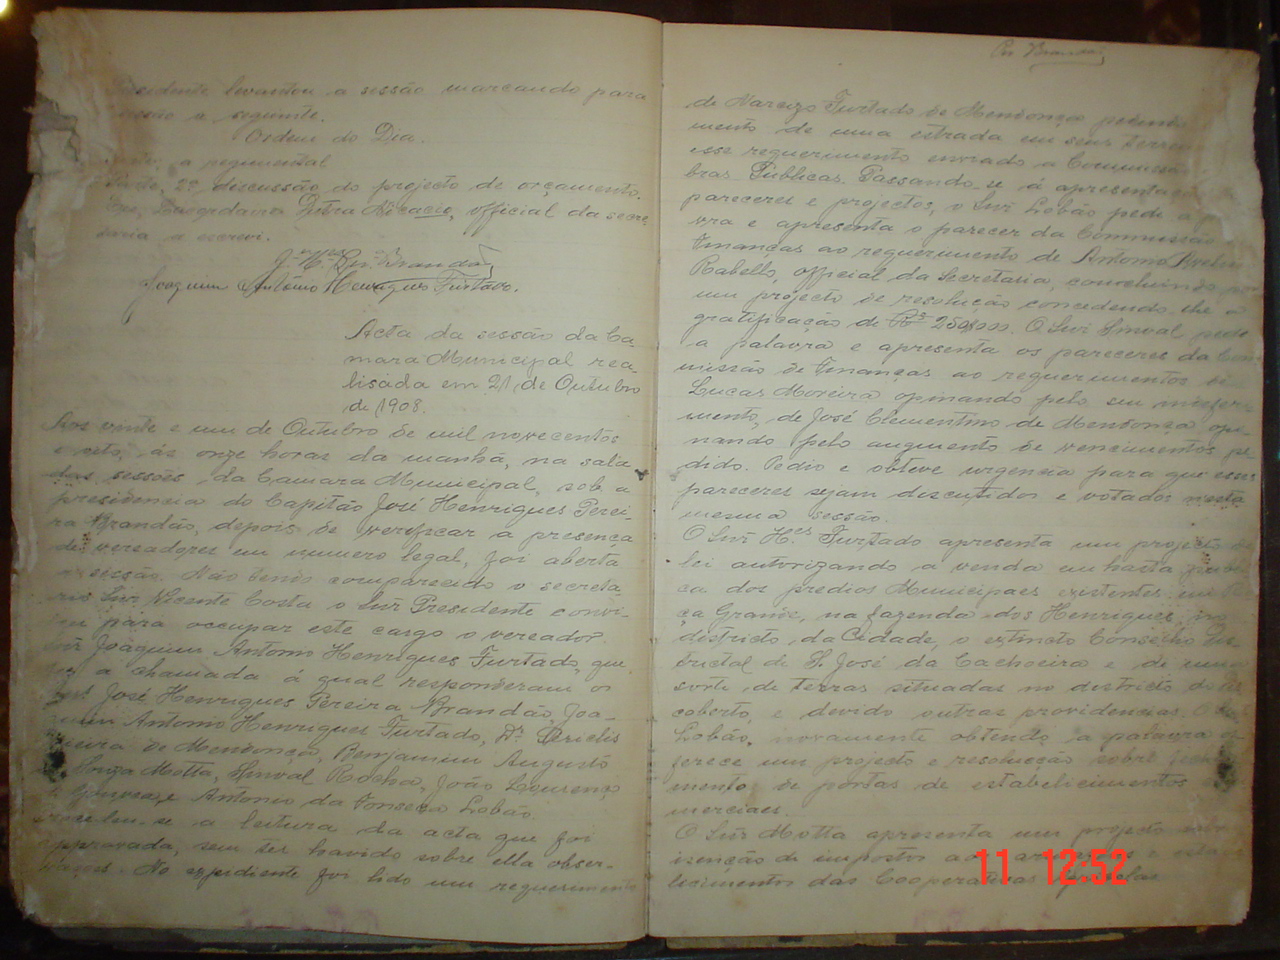 sidente levantou a sessão marcando para
a seguinte.
Ordem do Dia.
a regimental
2ª discussão do projecto de orçamento.
official da secre
taria a escrevi.
Joaquim Antonio Henriques Furtado.
Acta da sessão da Ca
mara Municipal rea-
lisada em 21 de Outubro
de 1908.
Aos vinte e um de Outubro de mil novecentos
e oito, ás onze horas da manhã, na sala
das sessões da Camara Municipal, sob a
presidencia do Capitão José Henriques Perei-
ra Brandão, depois de verificar a presença
de vereadores em numero legal, foi aberta
a sessão. Não tendo comparecido o secreta
rio Snr. Vicente Costa o Snr Presidente convi-
para occupar este cargo o vereador
Snr Joaquim Antonio Henriques Furtado, que
fez a chamada á qual responderam os
José Henriques Pereira Brandão, Joa-
quim Antonio Henriques Furtado, Dr. Pericles
Vieira de Mendonça, Benjamim Augusto
Souza Motta, Sinval Rocha, João Lourenço
e Antonio da Fonseca Lobão.
se a leitura da acta que foi
approvada, sem ter havido sobre ella obser-
vações. No expediente foi lido um requerimento
Per Brandão
de Narcizo Furtado de Mendonça pedindo
mento de uma estrada em seus
esse requerimento enviado a Commissão
bras Publicas. Passando-se á apresentação
pareceres e projectos, o Snr Lobão pede a
vra e apresenta o parecer da Commissão
Finanças ao requerimento de Antonio Avelino
Rabello, official da Secretaria, concluindo por
um projecto de resolução concedendo-lhe a
gratificação de Rs 250$000. O Snr Sinval pede
a palavra e apresenta os pareceres da Com
missão de Finanças ao requerimentos de
Lucas Moreira opinando pelo seu indeferi
mento, de José Clementino de Mendonça opi-
nando pelo augmento de vencimentos pe
dido. Pedio e obteve urgencia para que esses
pareceres sejam discutidos e votados nesta
mesma sessão.
O Snr H.es Furtado apresenta um projecto de
lei autorizando a venda em hasta publi
ca dos predios Municipaes existentes em
ça Grande, na fazenda dos Henriques, no
districto da Cidade, o extincto Conselho Dis
trictal de S. José da Cachoeira e de uma
sorte de terras situadas no districto do Des
coberto, e devido outras providencias. O Snr
Lobão, novamente obtendo a palavra of
ferece um projecto e resolucção sobre fecha
mento de portas de estabelicimentos co
merciaes.
O Snr Motta apresenta um projecto sobre
isenção de impostos aos e estabe
lecimentos das Cooperativas
11 12:52